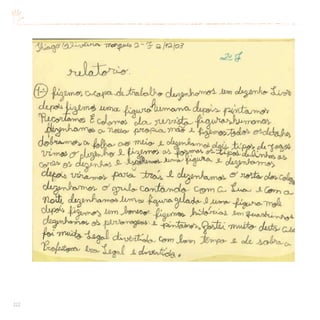 Thiago Oliveira marques 2-F 2/12/03
2ª F
relatorio.
1- fizemos a capa de trabalho dezenhamos um dezenho Livre
depois fizemos uma figura humana depois pintamos
Recortamos E colamos da revista figuras humanas
dezenhamos a nossa propria mão e fizemos todos os detalhes
dobramos a folha ao meio e dezenhamos dois tipos de
vimos o dezenho e fizemos as formas os tipos de linhas as
cores os dezenhos e uma figura e dezenhamos
depois viramos para trás e dezenhamos o rosto dos colegas
dezenhamos o grilo cantando com a Lua e com a
Noite dezenhamos uma figura gelada e uma figura mole
depois fizemos um boneco fizemos histórias em quadrinhos
dezenhamos os personagens e pintamos. Gostei muito desta aula
foi muito Legal divertida com bom tempo e de sobra a
Professora era Legal e divertida.